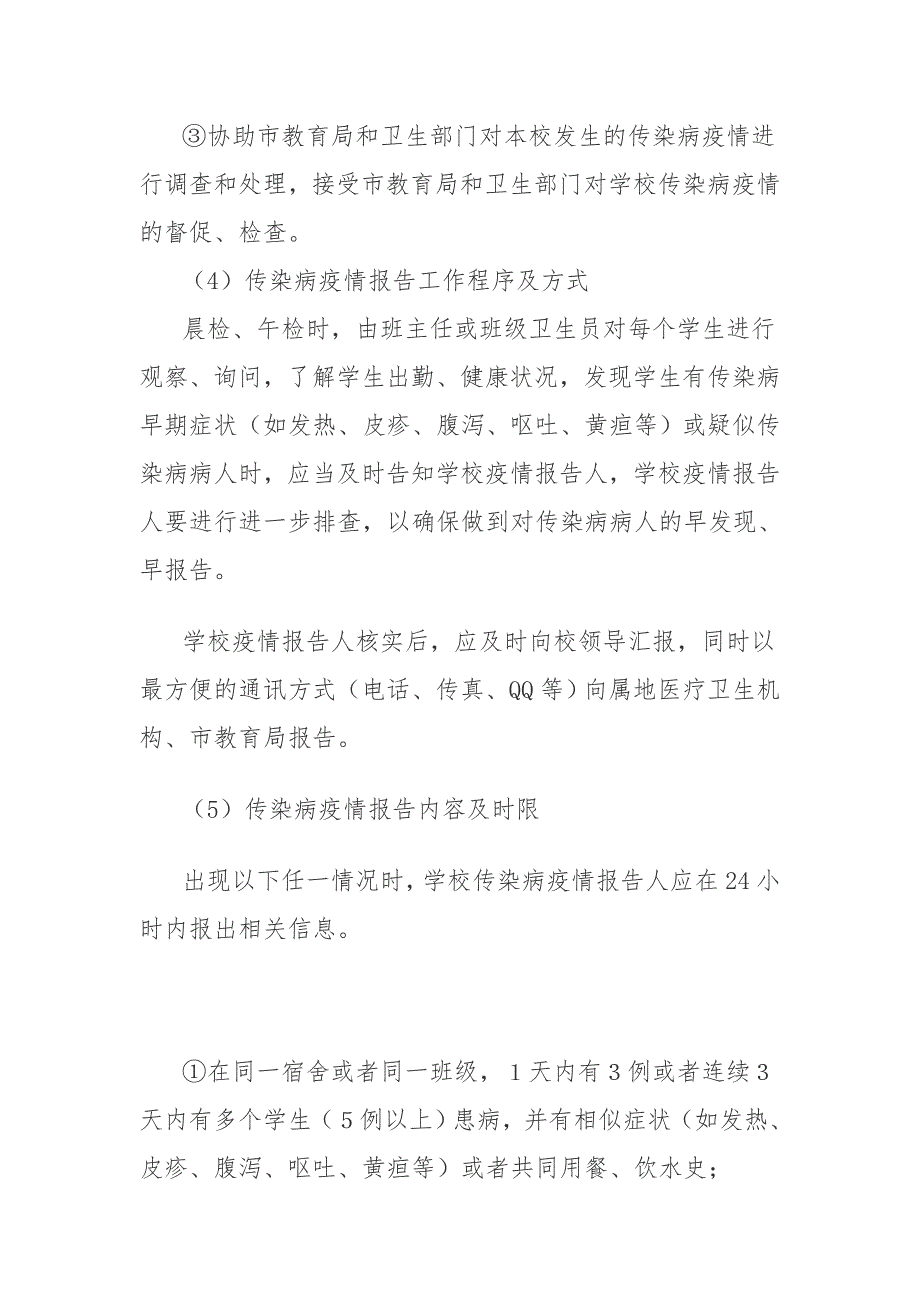 ③协助市教育局和卫生部门对本校发生的传染病疫情进
行调查和处理，接受市教育局和卫生部门对学校传染病疫情
的督促、检查。
（4）传染病疫情报告工作程序及方式
晨检、午检时，由班主任或班级卫生员对每个学生进行
观察、询问，了解学生出勤、健康状况，发现学生有传染病
早期症状（如发热、皮疹、腹泻、呕吐、黄疸等）或疑似传
染病病人时，应当及时告知学校疫情报告人，学校疫情报告
人要进行进一步排查，以确保做到对传染病病人的早发现、
早报告。
学校疫情报告人核实后，应及时向校领导汇报，同时以
最方便的通讯方式（电话、传真、QQ 等）向属地医疗卫生机
构、市教育局报告。
（5）传染病疫情报告内容及时限
出现以下任一情况时，学校传染病疫情报告人应在 24 小
时内报出相关信息。
①在同一宿舍或者同一班级，1 天内有 3 例或者连续 3
天内有多个学生（5 例以上）患病，并有相似症状（如发热、
皮疹、腹泻、呕吐、黄疸等）或者共同用餐、饮水史；